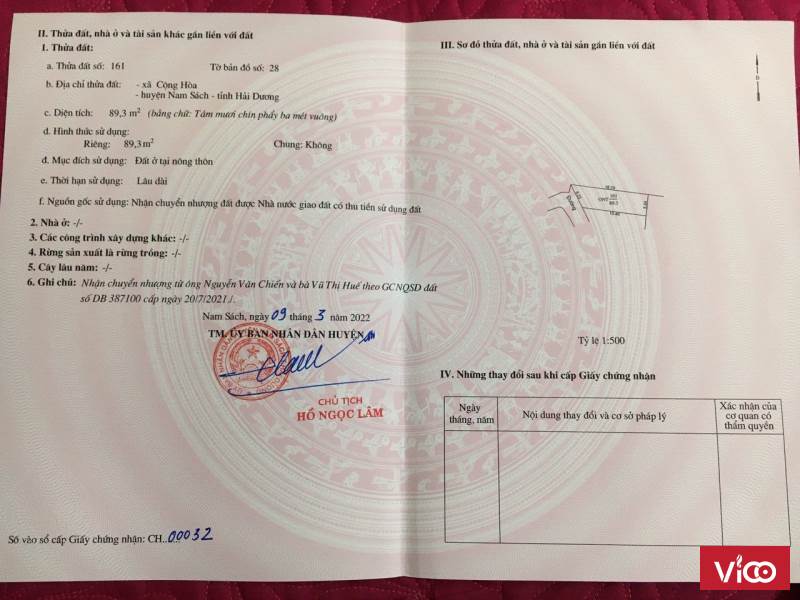 II. Thửa đất, nhà ở và tài sản khác gắn liền với đất
1. Thửa đất:
a. Thửa đất số: 161 Tờ bản đồ số: 28
b. Địa chỉ thửa đất: - xã Cộng Hòa
- huyện Nam Sách - tỉnh Hải Dương
c. Diện tích: 89,3 m² (bằng chữ: Tám mươi chín phẩy ba mét vuông)
d. Hình thức sử dụng:
Riêng: 89,3 m² Chung: Không
đ. Mục đích sử dụng: Đất ở tại nông thôn
e. Thời hạn sử dụng: Lâu dài
f. Nguồn gốc sử dụng: Nhận chuyển nhượng đất được Nhà nước giao đất có thu tiền sử dụng đất
2. Nhà ở: -/-
3. Các công trình xây dựng khác: -/-
4. Rừng sản xuất là rừng trồng: -/-
5. Cây lâu năm: -/-
6. Ghi chú: Nhận chuyển nhượng từ ông Nguyễn Văn Chiến và bà Vũ Thị Huế theo GCNQSD đất
số DB 387100 cấp ngày 20/7/2021 /.
Nam Sách, ngày 09 tháng 3 năm 2022
TM. ỦY BAN NHÂN DÂN HUYỆN
CHỦ TỊCH
HỒ NGỌC LÂM
Số vào sổ cấp Giấy chứng nhận: CH..00032
III. Sơ đồ thửa đất, nhà ở và tài sản gắn liền với đất
Đường
ONT 161
89.3
Tỷ lệ 1:500
IV. Những thay đổi sau khi cấp Giấy chứng nhận
Ngày tháng, năm
Nội dung thay đổi và cơ sở pháp lý
Xác nhận của cơ quan có thẩm quyền
Vicoo